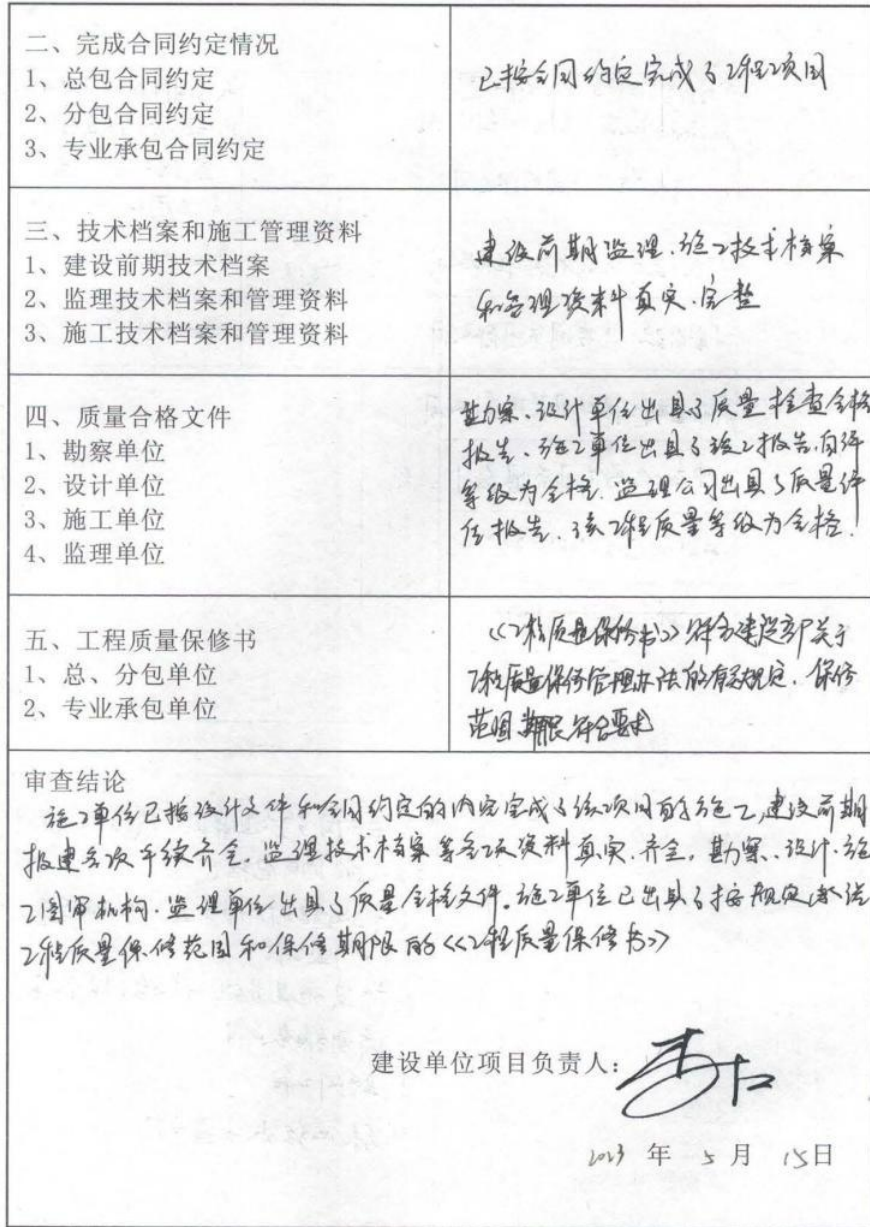 二、完成合同约定情况
1、总包合同约定
2、分包合同约定
3、专业承包合同约定
已按合同约定完成了工程项目
三、技术档案和施工管理资料
1、建设前期技术档案
2、监理技术档案和管理资料
3、施工技术档案和管理资料
建设前期监理、施工技术档案
和管理资料真实、完整
四、质量合格文件
1、勘察单位
2、设计单位
3、施工单位
4、监理单位
勘察、设计单位出具了质量检查合格
报告、施工单位出具了竣工报告,自评
等级为合格、监理公司出具了质量评
估报告、该工程质量等级为合格!
五、工程质量保修书
1、总、分包单位
2、专业承包单位
《工程质量保修书》符合建设部关于
工程质量保修管理办法的有关规定、保修
范围期限符合要求
审查结论
施工单位已按设计文件和合同约定的内容完成了该项目的施工,建设前期
报建各项手续齐全、监理技术档案等各项资料真实、齐全,勘察、设计、施
工图审机构、监理单位出具了质量合格文件。施工单位已出具了按规定
工程质量保修范围和保修期限的《工程质量保修书》
建设单位项目负责人:
2023 年 5 月 15日